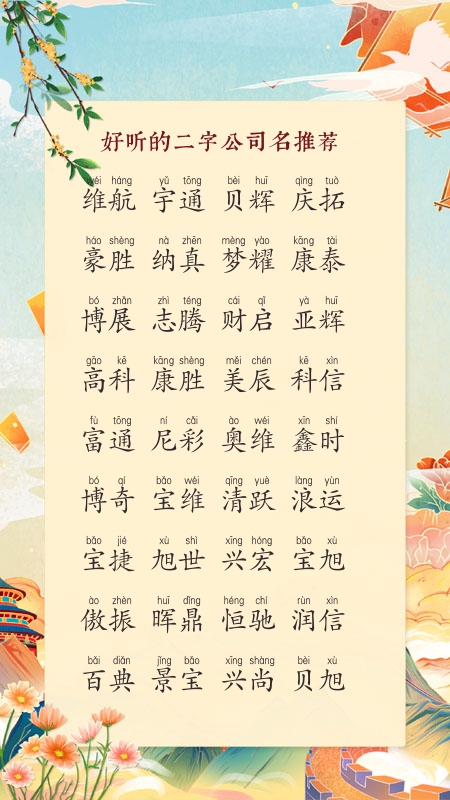 好听的二字公司名推荐
wéi háng yǔ tōng bèi huī qìng tuò
维航 宇通 贝辉 庆拓
háo shèng nà zhēn mèng yào kāng tài
豪胜 纳真 梦耀 康泰
bó zhǎn zhì téng cái qǐ yà huī
博展 志腾 财启 亚辉
gāo kē kāng shèng měi chén kē xìn
高科 康胜 美辰 科信
fù tōng ní cǎi ào wéi xīn shí
富通 尼彩 奥维 鑫时
bó qí bǎo wéi qīng yuè làng yùn
博奇 宝维 清跃 浪运
bǎo jié xù shì xīng hóng bǎo xù
宝捷 旭世 兴宏 宝旭
ào zhèn huī dǐng héng chí rùn xìn
傲振 晖鼎 恒驰 润信
bǎi diǎn jǐng bǎo xīng shàng bèi xù
百典 景宝 兴尚 贝旭